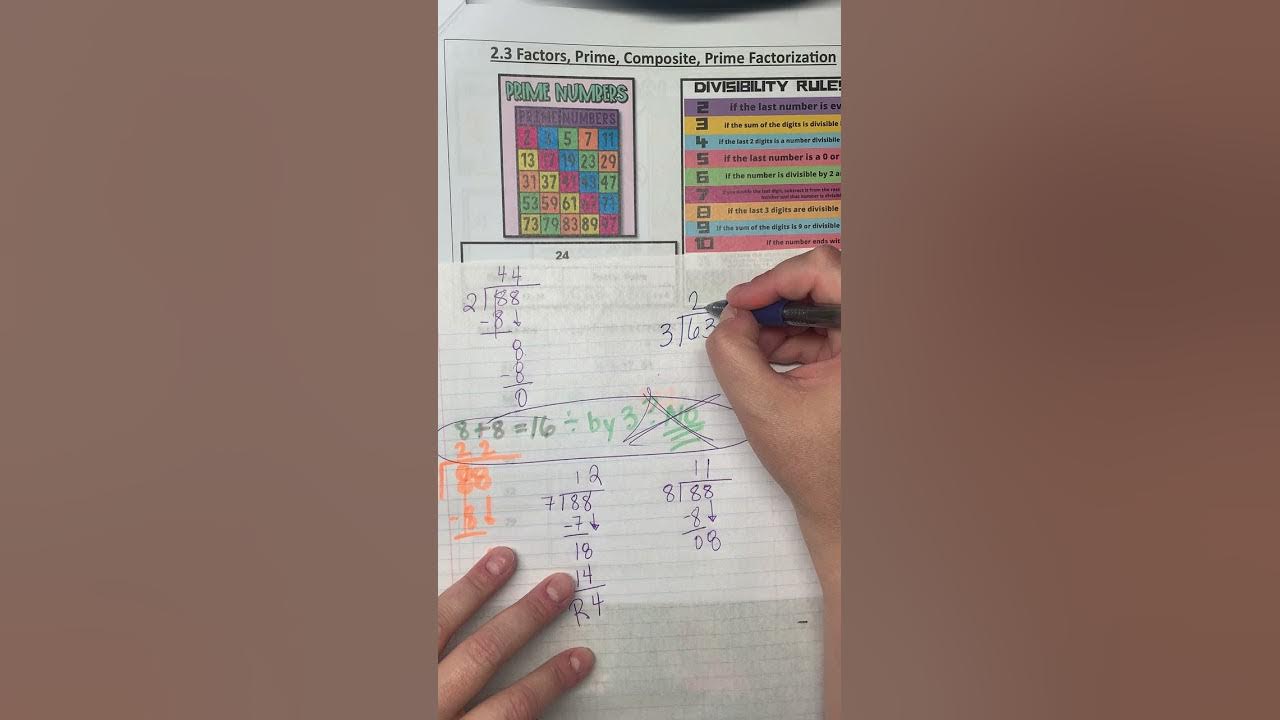 2.3 Factors, Prime, Composite, Prime Factorization
PRIME NUMBERS
PRIME NUMBERS
2 3 5 7 11
13 17 19 23 29
31 37 41 43 47
53 59 61 67 71
73 79 83 89 97
DIVISIBILITY RULES
2 if the last number is ev
3 if the sum of the digits is divisible
4 if the last 2 digits is a number divisibile
5 if the last number is a 0 or
6 if the number is divisible by 2 a
7 if you double the last digit, subtract it from the rest
8 if the last 3 digits are divisible
9 if the sum of the digits is 9 or divisible
10 if the number ends wit
24
44
2 88
-8
8
-8
0
2
3 63
8+8=16 ÷ by 3? NO
22
88
-8
12
7 88
-7
18
14
R4
11
8 88
-8
08